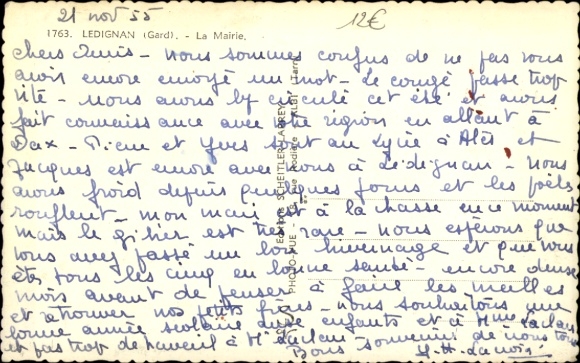 21 nov 55
12€
1763. LEDIGNAN (Gard). - La Mairie.
chers Amis - nous sommes confus de ne pas vous
avoir encore envoyé un mot - le congé passe trop
vite - nous avons circulé cet été et avons
fait connaissance avec votre région en allant à
Dax - Pierre et Yves sont au Lycée à Alès et
Jacques est encore avec nous à Lédignan - nous
avons froid depuis quelques jours et les poêles
ronflent - mon mari est à la chasse en ce moment
mais le gibier est très rare - nous espérons que
vous avez passé un bon hivernage et que vous
êtes tous les cinq en bonne santé - encore
mois avant de penser à faire les malles
et retrouver nos petits frères - nous souhaitons une
bonne année scolaire aux enfants et à Mme
et pas trop de travail à Mr
Bons souvenirs de nous tous
Editions SCHEITLER-LABREY
PHOTO-RUE ALBI (Tarn)